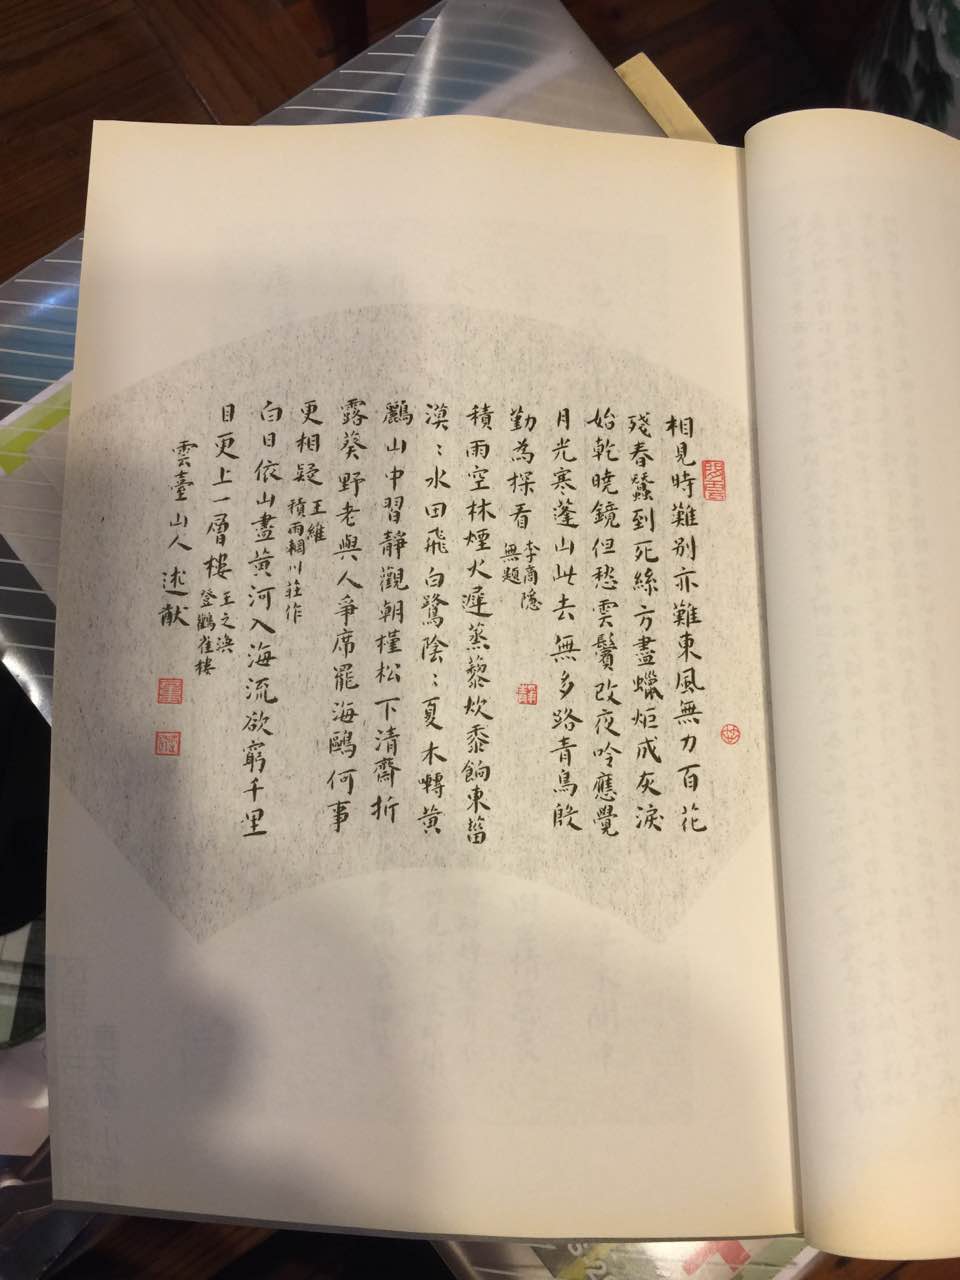 相見時難別亦難東風無力百花
殘春蠶到死絲方盡蠟炬成灰淚
始乾曉鏡但愁雲鬢改夜吟應覺
月光寒蓬山此去無多路青鳥殷
勤為探看
李商隱
無題
積雨空林煙火遲蒸藜炊黍餉東菑
漠〻水田飛白鷺陰〻夏木囀黃
鸝山中習靜觀朝槿松下清齋折
露葵野老與人爭席罷海鷗何事
更相疑
王維
積雨輞川莊作
白日依山盡黃河入海流欲窮千里
目更上一層樓
王之渙
登鸛雀樓
雲臺山人
述猷